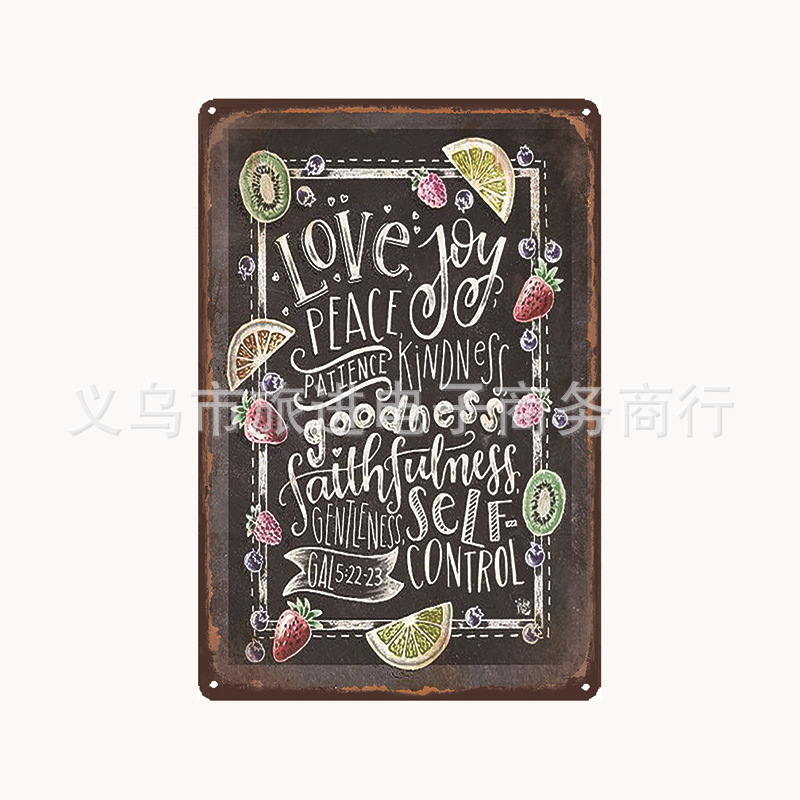 LOVE, joy,
PEACE,
PATIENCE, KiNDNesS,
goodness,
faithfulness,
GENTLENESS, SELF-
CONTROL
GAL 5:22-23
义乌市旅进电子商务商行